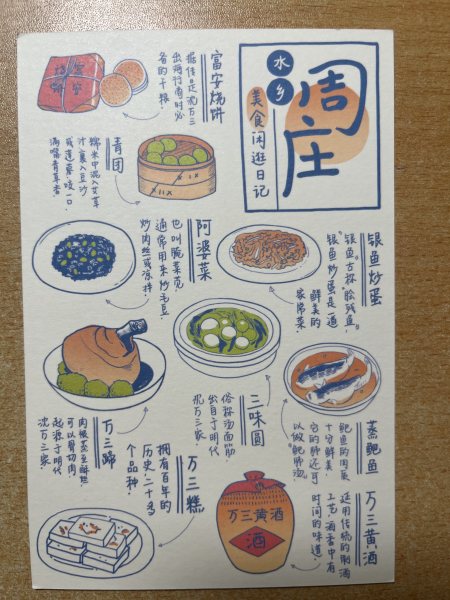 水乡
周庄
美食闲逛日记
富安烧饼
据传是沈万三
出两行商时必
备的干粮！
青团
糯米中混入艾草
汁裹入豆沙
或莲蓉咬一口
满嘴青草香！
阿婆菜
也叫腌菜苋
通常用来炒毛豆、
炒肉丝或凉拌！
银鱼炒蛋
银鱼古称“脍残鱼”。
银鱼炒蛋是一道
鲜美的
家常菜！
三味圆
俗称汤面筋
出自于明代
沈万三家！
蒸鲃鱼
鲃鱼的肉质
十分鲜美，
它的肺还可
以做“鲃肺汤”。
万三蹄
肉质蒸至鲜烂
可以骨切肉
起源于明代
沈万三家！
万三糕
拥有百年的
历史，二十多
个品种！
万三黄酒
运用传统的制酒
工艺，酒香中有
时间的味道！
万三黄酒
酒